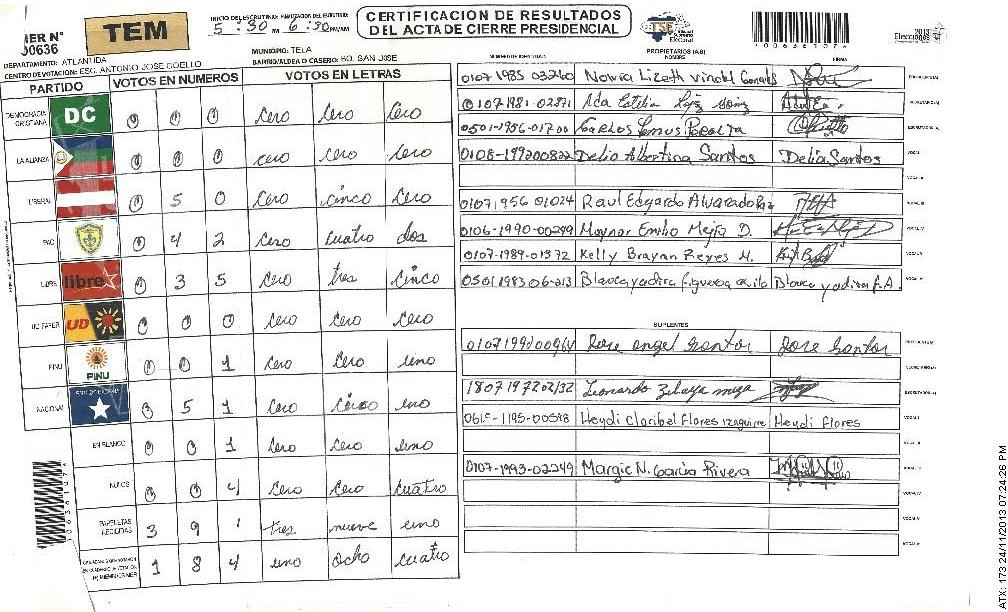 MER N°
00636
TEM
INICIO DEL ESCRUTINIO: FINALIZACION DEL ESCRUTINIO:
5:30 PM 6:30 PM/AM
CERTIFICACION DE RESULTADOS
DEL ACTA DE CIERRE PRESIDENCIAL
TSE
Tribunal Supremo Electoral
006361074
2013
Elecciones
DEPARTAMENTO: ATLANTIDA
MUNICIPIO: TELA
CENTRO DE VOTACION: ESC. ANTONIO JOSE COELLO
BARRIO/ALDEA O CASERIO: BO. SAN JOSE
PARTIDO VOTOS EN NUMEROS VOTOS EN LETRAS
DEMOCRACIA CRISTIANA DC 0 0 0 Cero Cero Cero
LA ALIANZA 0 0 0 cero cero Cero
LIBERAL 0 5 0 Cero Cinco Cero
PAC 0 4 2 Cero Cuatro dos
LIBRE libre 0 3 5 Cero tres Cinco
UD FAPER UD 0 0 0 Cero Cero Cero
PINU PINU 0 0 1 Cero Cero uno
NACIONAL 0 5 1 Cero Cinco uno
EN BLANCO 0 0 1 Cero Cero uno
NULOS 0 0 4 Cero Cero Cuatro
PAPELETAS RECIBIDAS 3 9 1 tres nueve uno
1 8 4 uno Ocho Cuatro
PROPIETARIOS (AS)
NUMERO DE IDENTIDAD NOMBRE FIRMA
0107 1985 03260 Norma Lizeth PRESIDENTE(A)
0107-1981-02871 Ada SECRETARIO(A)
0501-1956-01700 Carlos Lemus Peralta ESCRUTADOR(A)
0108-199200822 Delia Albertina Santos Delia Santos VOCAL I
VOCAL II
0107 1956 01024 Raul Edgardo Alvarado Paz VOCAL III
0106-1990-00299 Maynor Emilio Mejia D. VOCAL IV
0107-1989-01372 Kelly Brayan Reyes M. VOCAL V
0501 1983 06213 Blanca yadira figueroa Blanca yadira F.A. VOCAL VI
SUPLENTES
Jose angel Santos Jose Santos PRESIDENTE(A)
SECRETARIO(A)
1807197202132 Leonardo Zelaya ESCRUTADOR(A)
Heydi Claribel Flores Izaguirre Heydi Flores VOCAL I
VOCAL II
0107-1993-02249 Margie N. Garcia Rivera VOCAL III
VOCAL IV
VOCAL V
VOCAL VI
006361074
ATX: 173 24/11/2013 07:24:26 PM